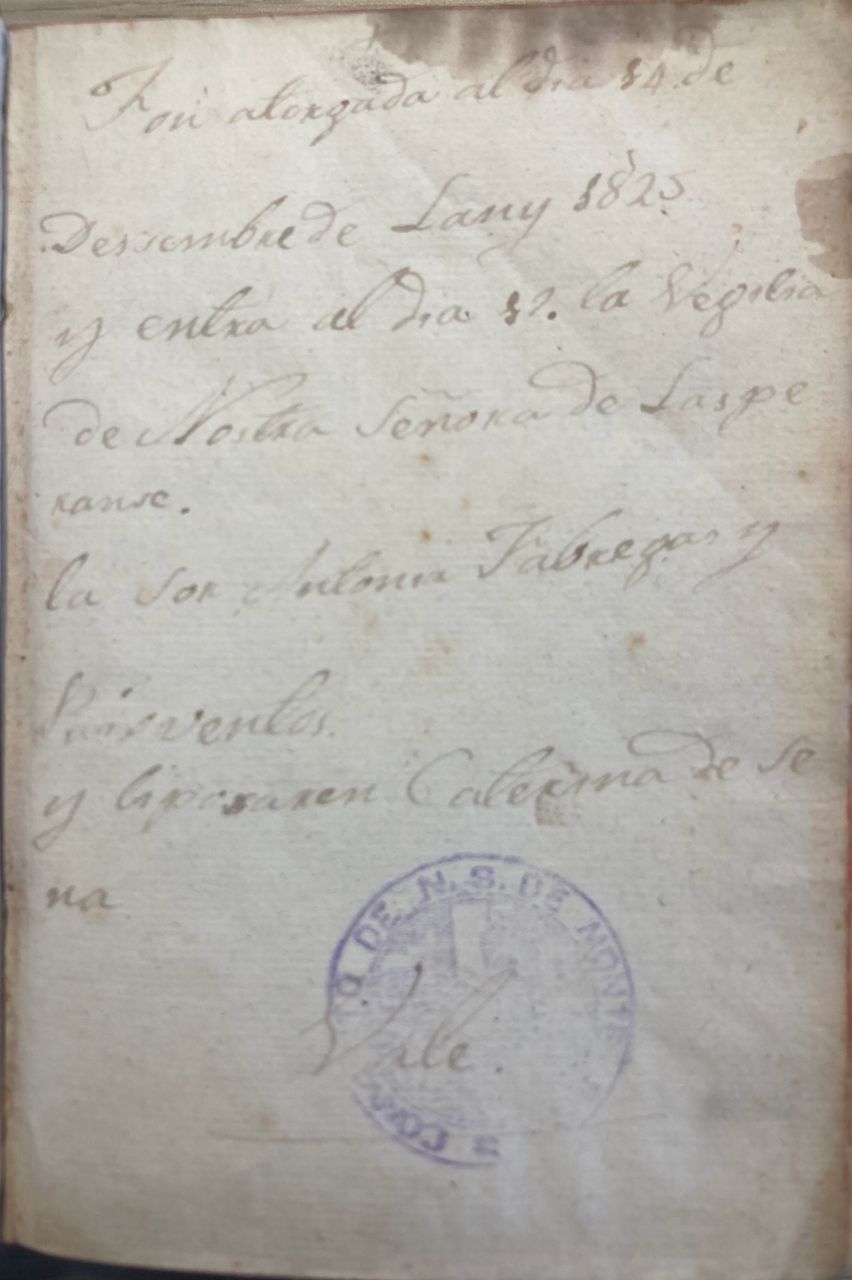 Fou atorgada al dia 14 de
Dessembre de Lany 1825
y entra al dia 17. la Vegilia
de Nostra Señora de Laspe
ranse.
la Sor Antonia Fabregas y
Puigventos.
y liposaren Caterina de Se
na
DE N. S. DE MONTE
Vale.